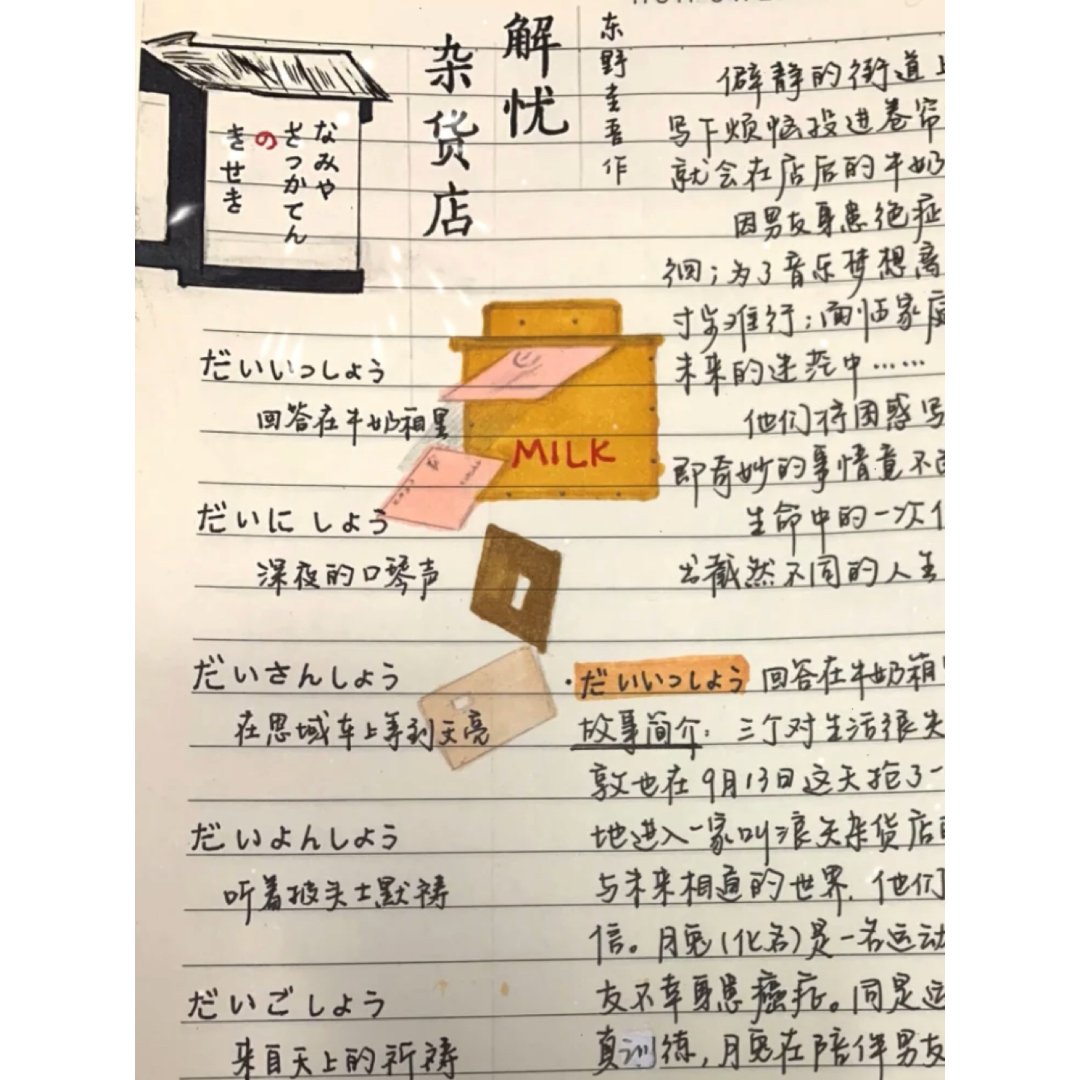 解忧
杂货店
东野圭吾作
なみや
ざっかてん
の
きせき
だいいっしょう
回答在牛奶箱里
だいにしょう
深夜的口琴声
だいさんしょう
在思域车上等到天亮
だいよんしょう
听着披头士默祷
だいごしょう
来自天上的祈祷
MILK
僻静的街道上
写下烦恼投进卷帘
就会在店后的牛奶
因男友身患绝症
徊;为了音乐梦想离
寸步难行;面临家庭
未来的迷茫中……
他们将困惑写
即奇妙的事情竟不
生命中的一次
出截然不同的人生
·だいいっしょう 回答在牛奶箱
故事简介：三个对生活很失
敦也在9月13日这天抢了一
地进入一家叫浪矢杂货店的
与未来相通的世界.他们
信。月兔(化名)是一名运动
友不幸身患癌症。同是运
真训练,月兔在陪伴男友